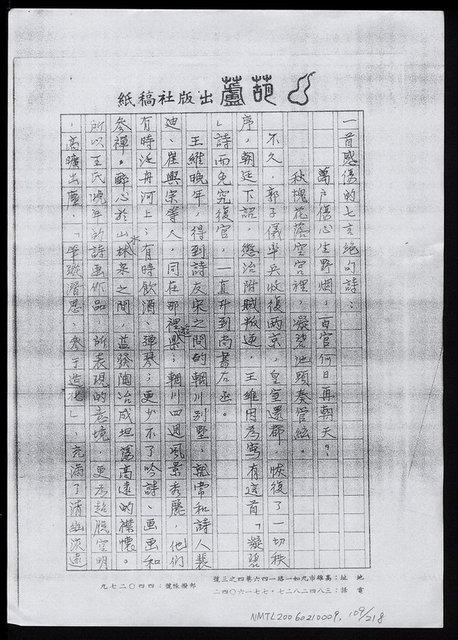 葫蘆出版社稿紙
一首感傷的七言絕句詩：
萬戶傷心生野烟，百官何日再朝天？
秋槐花落空宮裡，凝碧池頭奏管絃。
不久，郭子儀率兵收復兩京，皇室還都，恢復了一切秩
序，朝廷下詔，懲治附賊叛逆，王維因為寫有這首「凝碧
」詩而免究復官，一直升到尚書右丞。
王維晚年，得到詩友宋之問的輞川別墅，就常和詩人裴
迪、崔興宗等人，同在那裡遊樂；輞川四週風景秀麗，他們
有時泛舟河上；有時飲酒、彈琴；更少不了吟詩、畫畫和
參禪。醉心於山水林泉之間，益發陶冶成坦蕩高遠的襟懷。
所以王氏晚年的詩画作品，所表現的意境，更為超脫空明
，高曠出塵。「筆蹤潛思，參于造化」，充滿了清幽淡遠
地址：高雄市九如一路一四六巷四之三號
電話：三八四二八二七‧七七一六〇四二
郵撥帳號：四四〇二七九
NMTL20060210009, 109/218